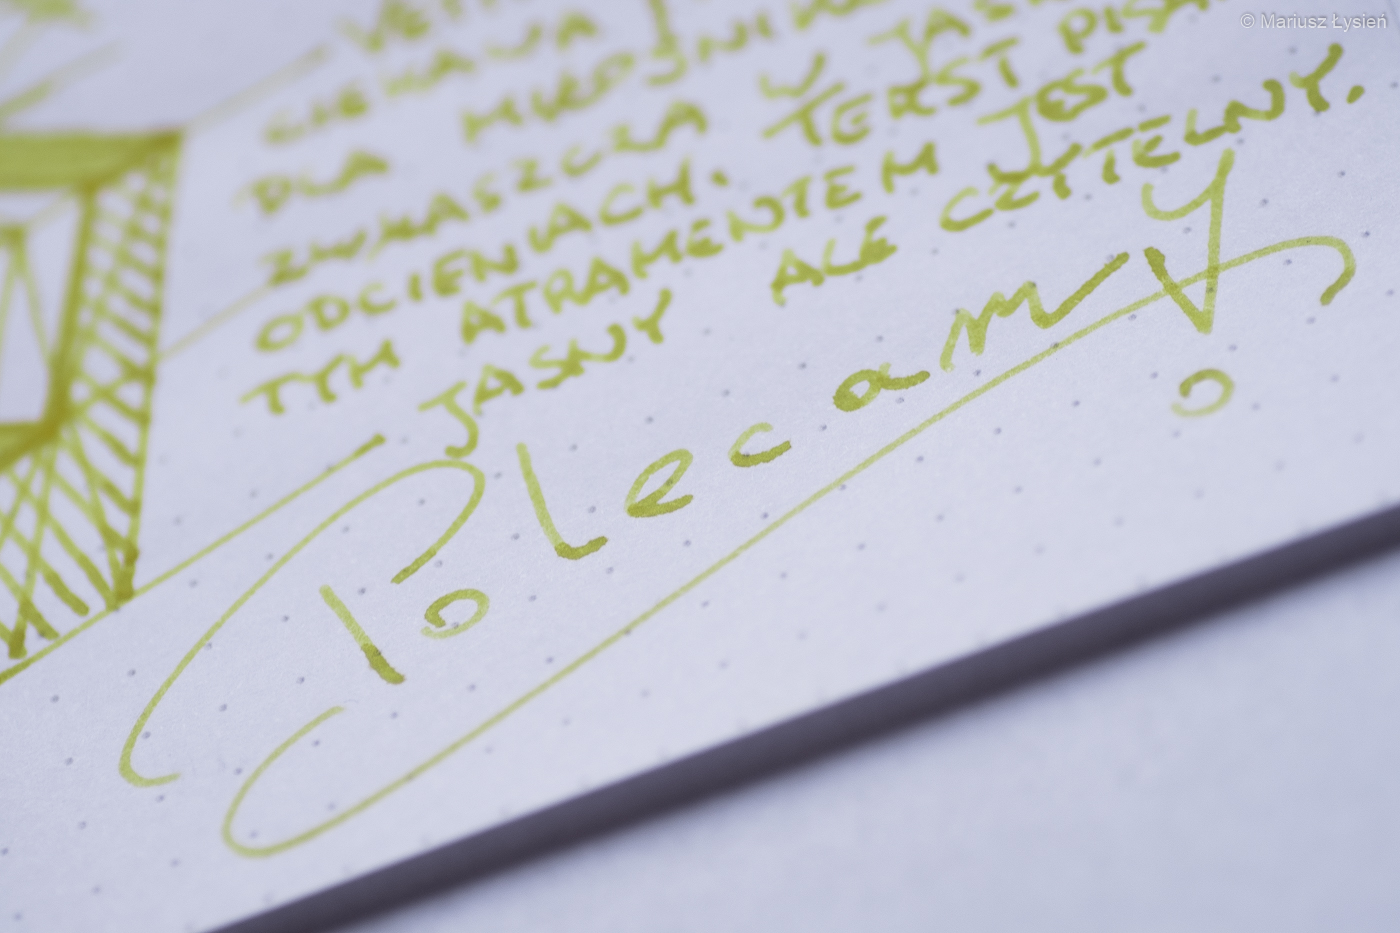 © Mariusz Łysień
CIEKAWA
DLA MIŁOŚNIKÓW
ZWŁASZCZA W JASN
ODCIENIACH. TEKST PISA
TYM ATRAMENTEM JEST
JASNY ALE CZYTELNY.
Polecamy!